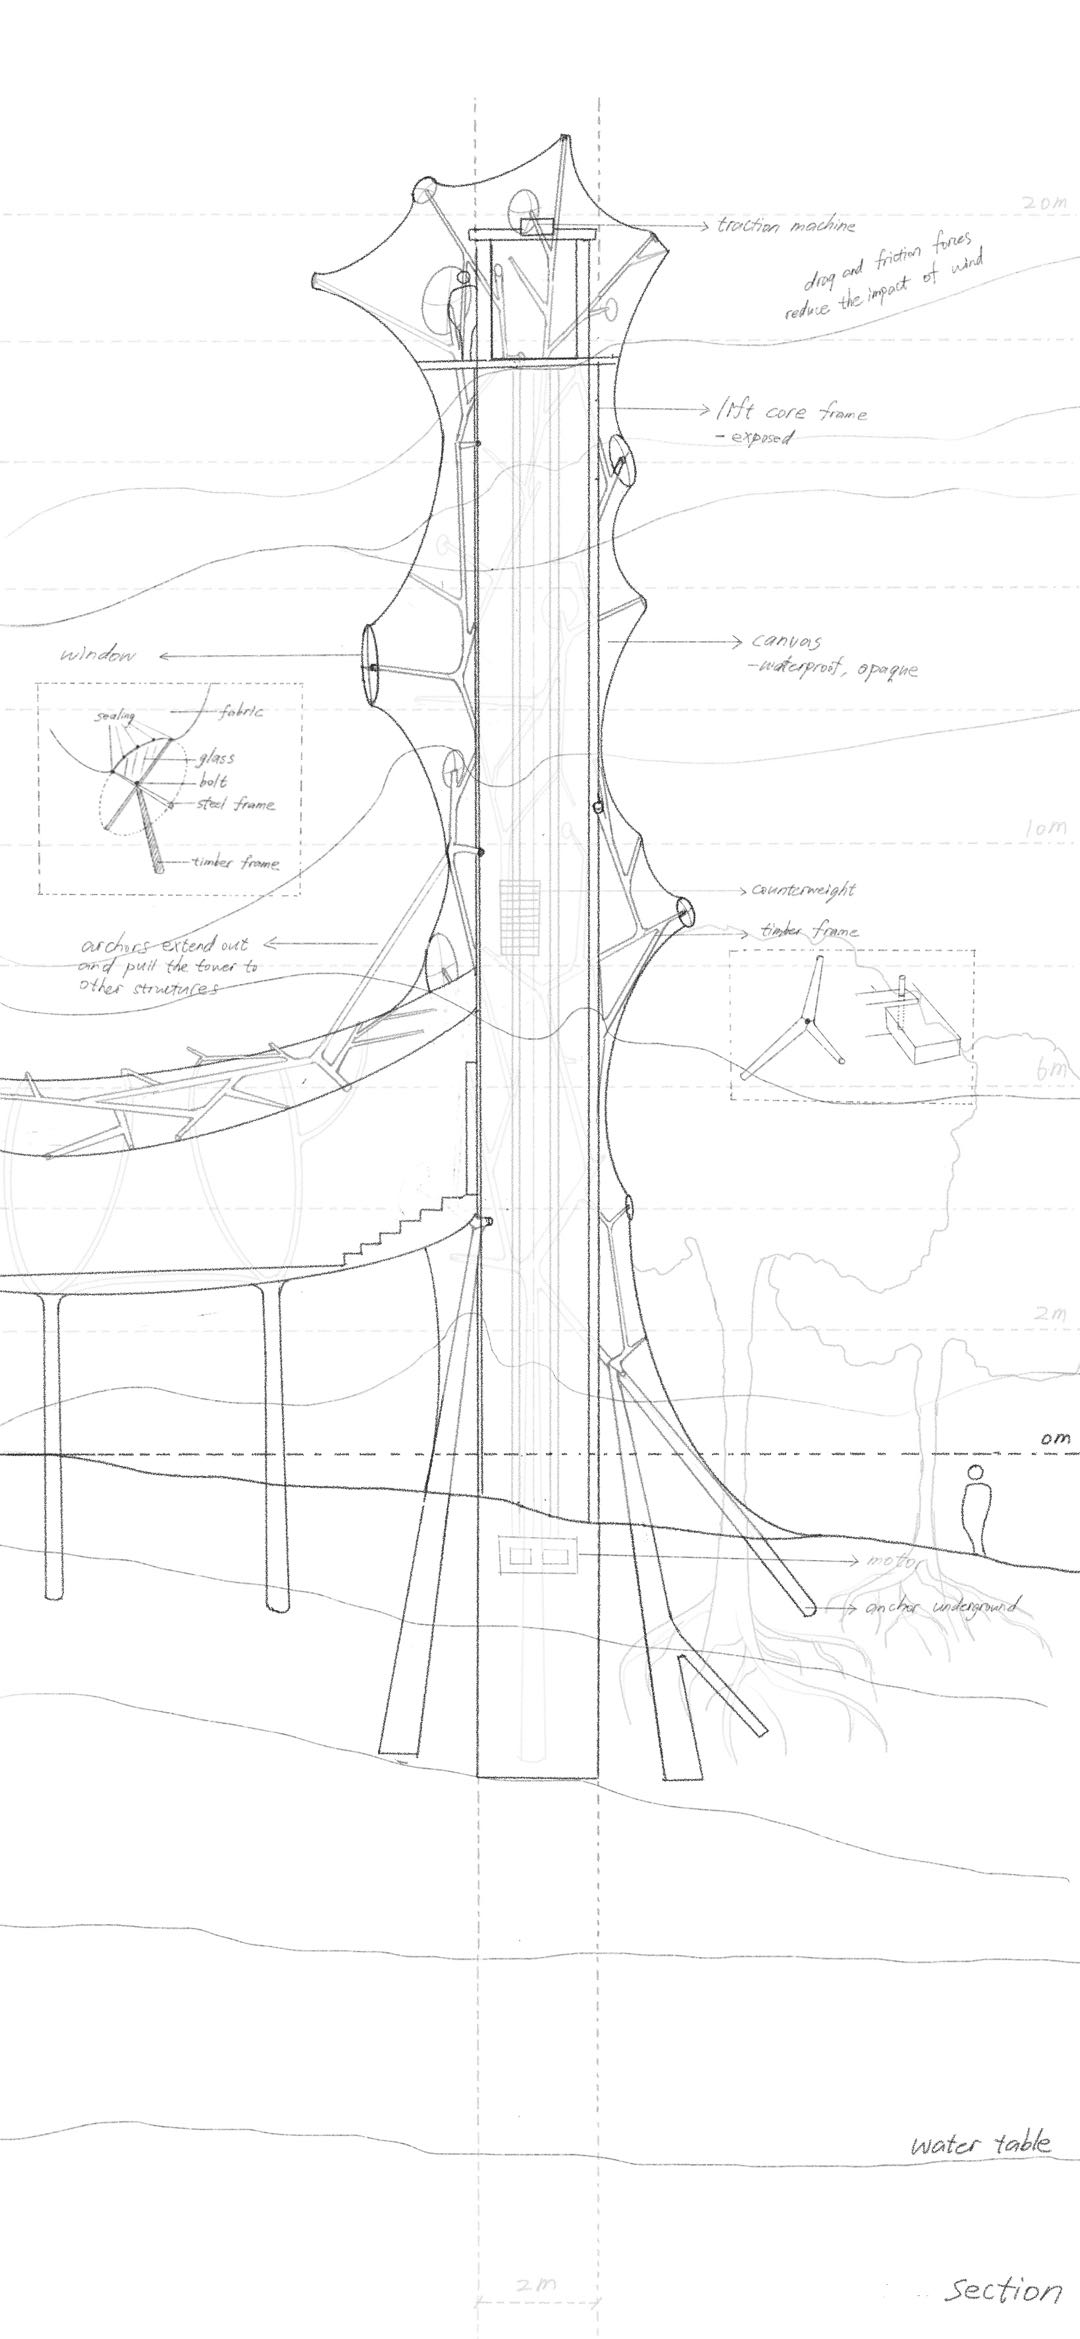 20m
traction machine
drag and friction forces
reduce the impact of wind
lift core frame
- exposed
canvas
-waterproof, opaque
window
sealing
fabric
glass
bolt
steel frame
timber frame
10m
counterweight
timber frame
anchors extend out
and pull the tower to
other structures
6m
2m
0m
mottor
anchor underground
water table
2m
section